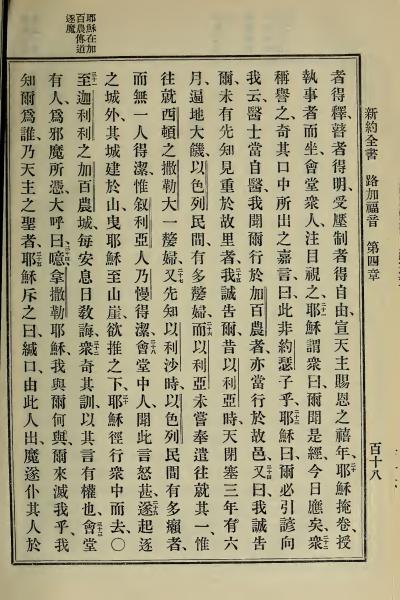 新約全書 路加福音 第四章 百十八
者得釋、瞽者得明、受壓制者得自由、宣天主賜恩之禧年、耶穌掩卷、授
執事者而坐、會堂衆人注目視之、耶穌謂衆曰、爾聞是經、今日應矣、衆
稱譽之、奇其口中所出之嘉言、曰、此非約瑟子乎、耶穌曰、爾必引諺向
我云、醫士當自醫、我聞爾行於加百農者、亦當行於故邑、又曰、我誠告
爾、未有先知見重於故里者、我誠告爾、昔以利亞時、天閉塞三年有六
月、遍地大饑、以色列民間有多嫠婦、而以利亞未嘗奉遣往就其一、惟
往就西頓之撒勒大一嫠婦、又先知以利沙時、以色列民間有多癩者、
而無一人得潔、惟叙利亞人乃慢得潔、會堂中人聞此言怒甚、遂起逐
之城外、其城建於山、曳耶穌至山崖、欲推之下、耶穌徑行衆中而去、〇
至迦利利之加百農城、每安息日教誨衆、奇其訓、以其言有權也、會堂
有人、爲邪魔所憑、大呼曰、噫、拿撒勒耶穌、我與爾何與、爾來滅我乎、我
知爾爲誰、乃天主之聖者、耶穌斥之曰、緘口、由此人出、魔遂仆其人於
耶穌在加
百農傳道
逐魔